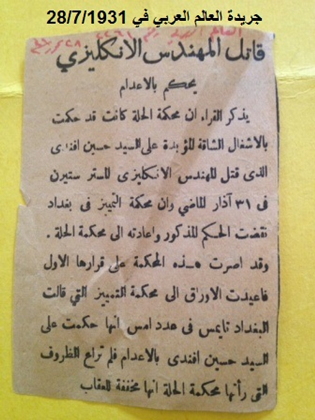 جريدة العالم العربي في 28/7/1931
قاتل المهندس الانكليزي
يحكم بالاعدام
يذكر القراء ان محكمة الحلة كانت قد حكمت
بالاشغال الشاقة المؤبدة على السيد حسين افندى
الذى قتل المهندس الانكليزى المستر ستيرن
فى ٣١ آذار الماضي وان محكمة التمييز فى بغداد
نقضت الحكم المذكور واعادته الى محكمة الحلة .
وقد اصرت هذه المحكمة على قرارها الاول
فاعيدت الاوراق الى محكمة التمييز التي قالت
البغداد تايمس فى عدد امس انها حكمت على
السيد حسين افندى بالاعدام فلم تراع الظروف
التى رأتها محكمة الحلة انها مخففة للعقاب